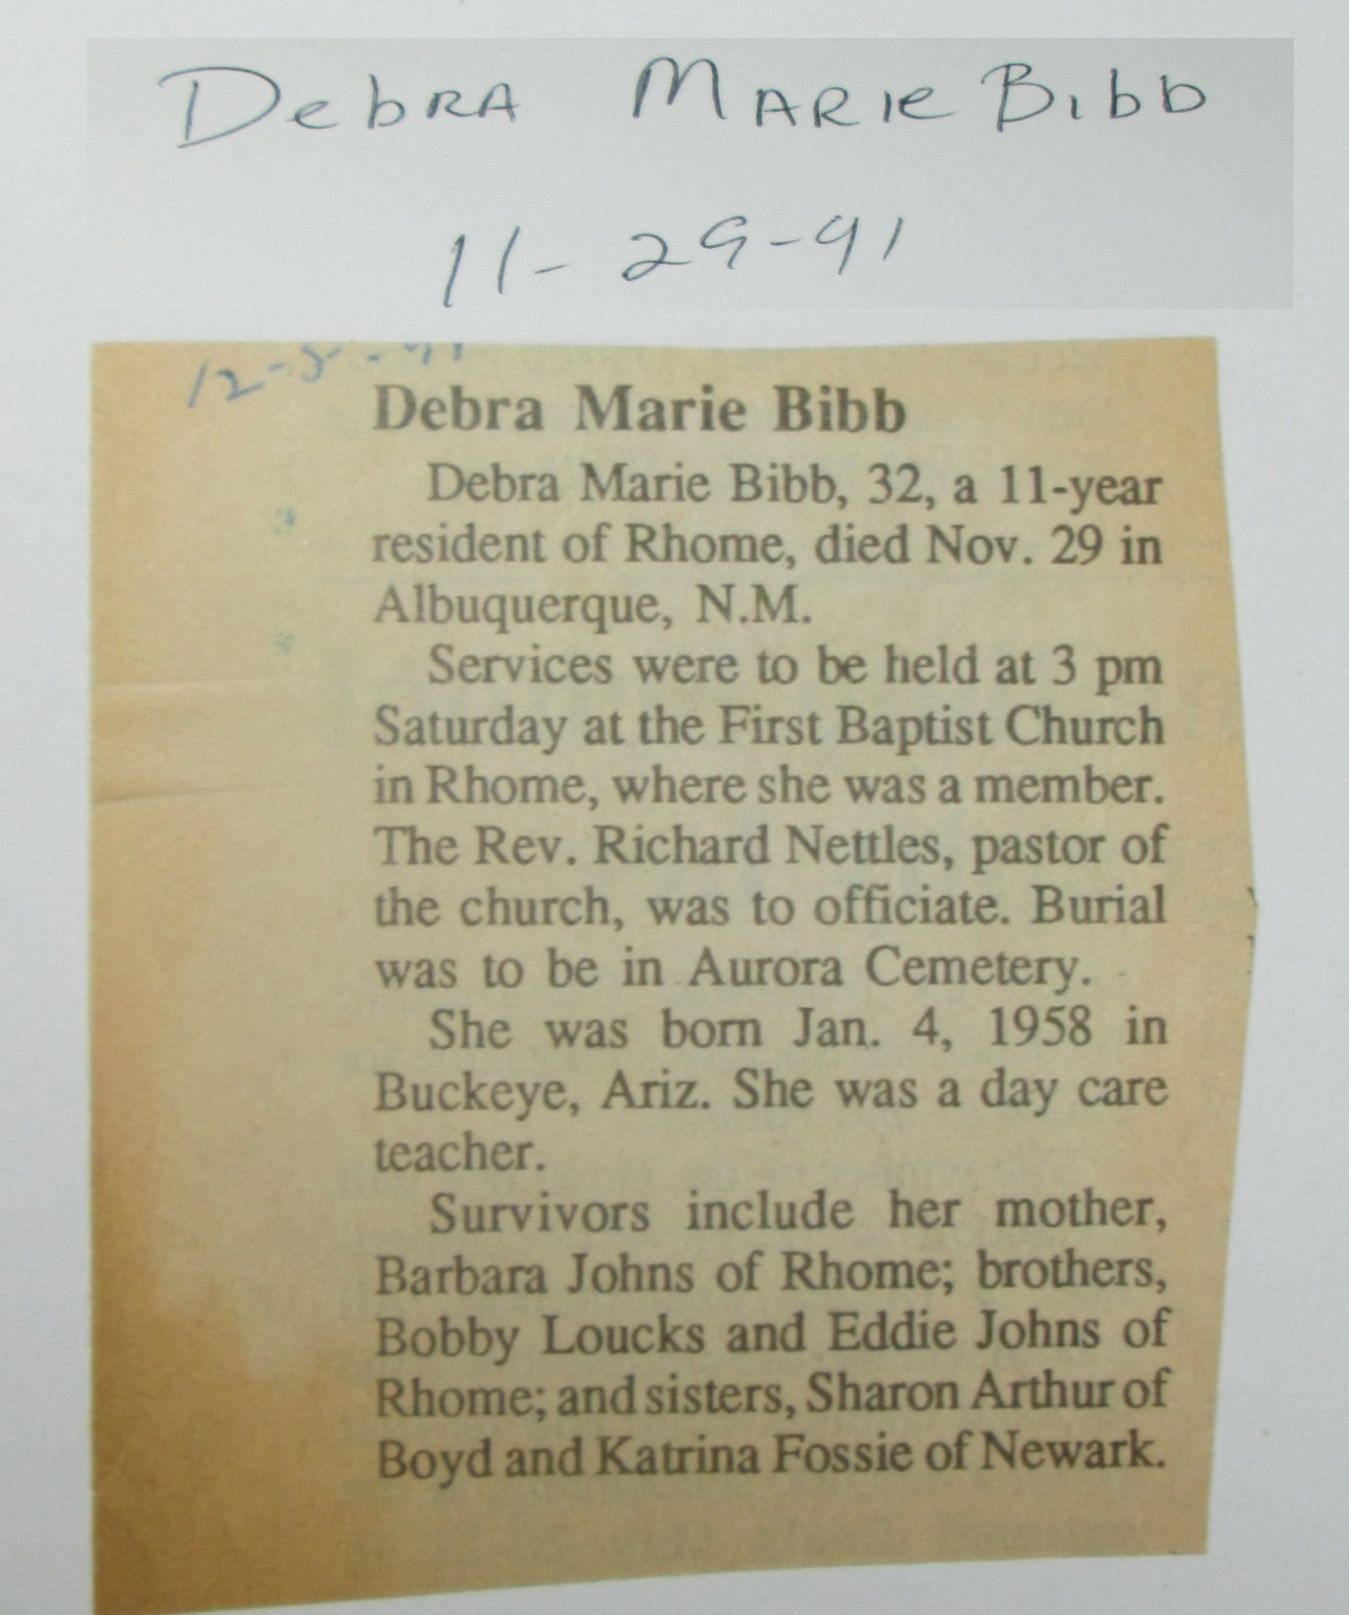 Debra Marie Bibb
11-29-91
12-5-91
Debra Marie Bibb
Debra Marie Bibb, 32, a 11-year
resident of Rhome, died Nov. 29 in
Albuquerque, N.M.
Services were to be held at 3 pm
Saturday at the First Baptist Church
in Rhome, where she was a member.
The Rev. Richard Nettles, pastor of
the church, was to officiate. Burial
was to be in Aurora Cemetery.
She was born Jan. 4, 1958 in
Buckeye, Ariz. She was a day care
teacher.
Survivors include her mother,
Barbara Johns of Rhome; brothers,
Bobby Loucks and Eddie Johns of
Rhome; and sisters, Sharon Arthur of
Boyd and Katrina Fossie of Newark.